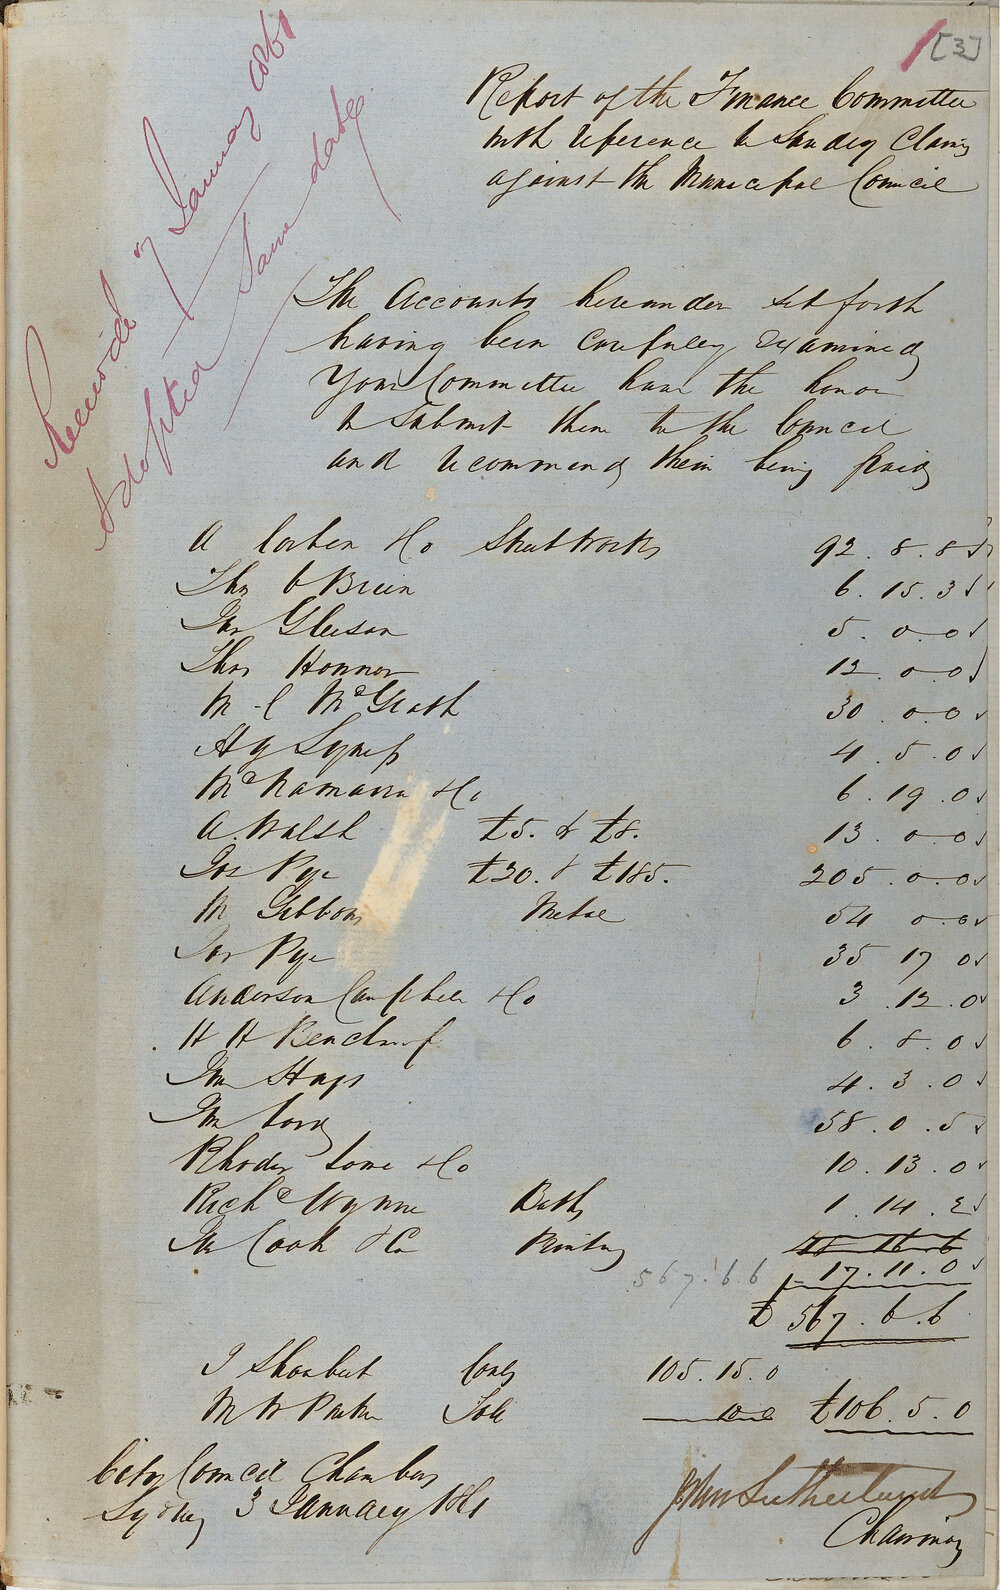 [3]
Report of the Finance Committee
with reference to Sundry Claims
against the Municipal Council
Received 7 January 1861
Adopted Same date
The Accounts hereunder set forth
having been Carefully Examined
Your Committee have the honor
to Submit them to the Council
and recommend their being paid
A Corben & Co Street Works 92 . 8 . 8
Thos O'Brien 6 . 15 . 3
Jas Gleeson 5 . 0 - 0
Thos Honnor 12 . 0 - 0
M C McGrath 30 . 0 . 0
Hy Lynch 4 . 5 . 0
McNamara & Co 6 . 19 . 0
A. Walsh £5. & £8. 13 . 0 - 0
Jas Pye £20. & £185. 205 . 0 - 0
M Gibbons Metal 54 0 - 0
Jas Pye 35 17 0
Anderson Campbell & Co 3 . 12 . 0
H H 6 . 8 . 0
Jno Hays 4 . 3 . 0
Jno 58 . 0 . 5
Rhodes & Co 10 . 13 . 0
Richd Wynne Baths 1 . 14 . 2
Jno Cook & Co Printing
567 . 6 . 6 17 . 11 . 0
£ 567 . 6 . 6
Coals 105 . 15 . 0
Parker 10 0 £106 . 5 . 0
City Council Chambers
Sydney 3 January 1861
John Sutherland
Chairman